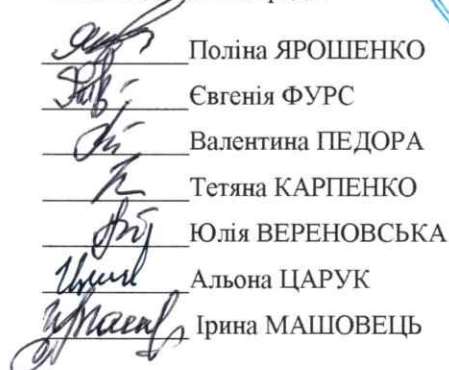 Поліна ЯРОШЕНКО
Євгенія ФУРС
Валентина ПЕДОРА
Тетяна КАРПЕНКО
Юлія ВЕРЕНОВСЬКА
Альона ЦАРУК
Ірина МАШОВЕЦЬ